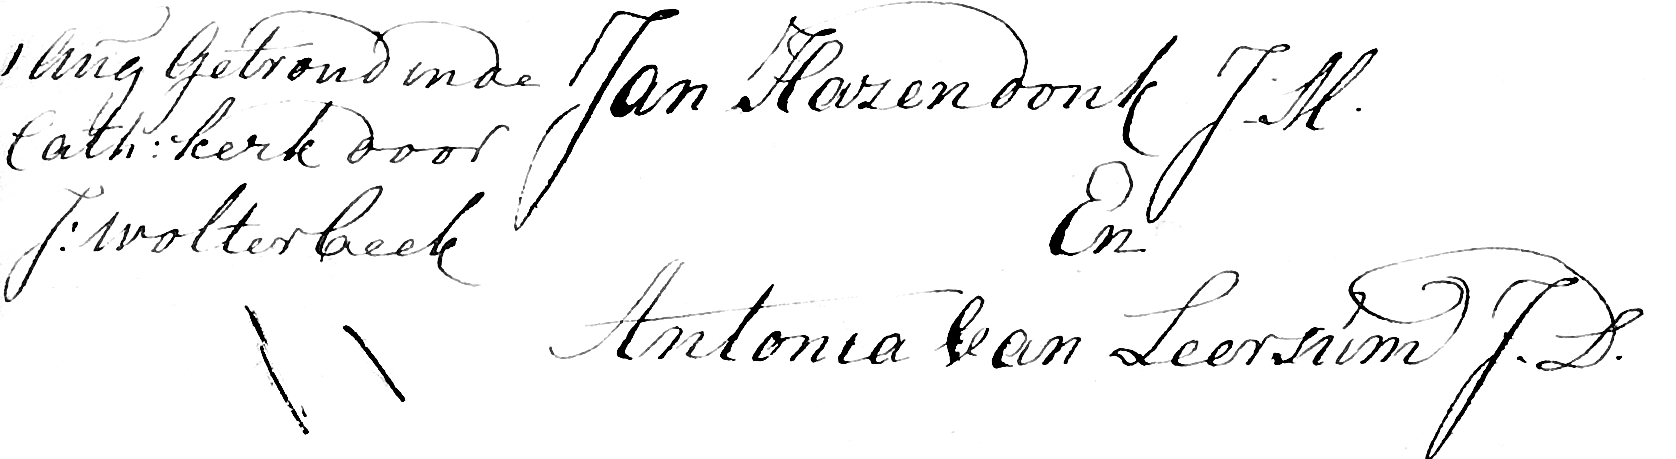 1 Aug Getrond in de
Cath: kerk door
J: wolterbeek
Jan Hazendonk J. M.
En
Antonia van Leersum J. D.